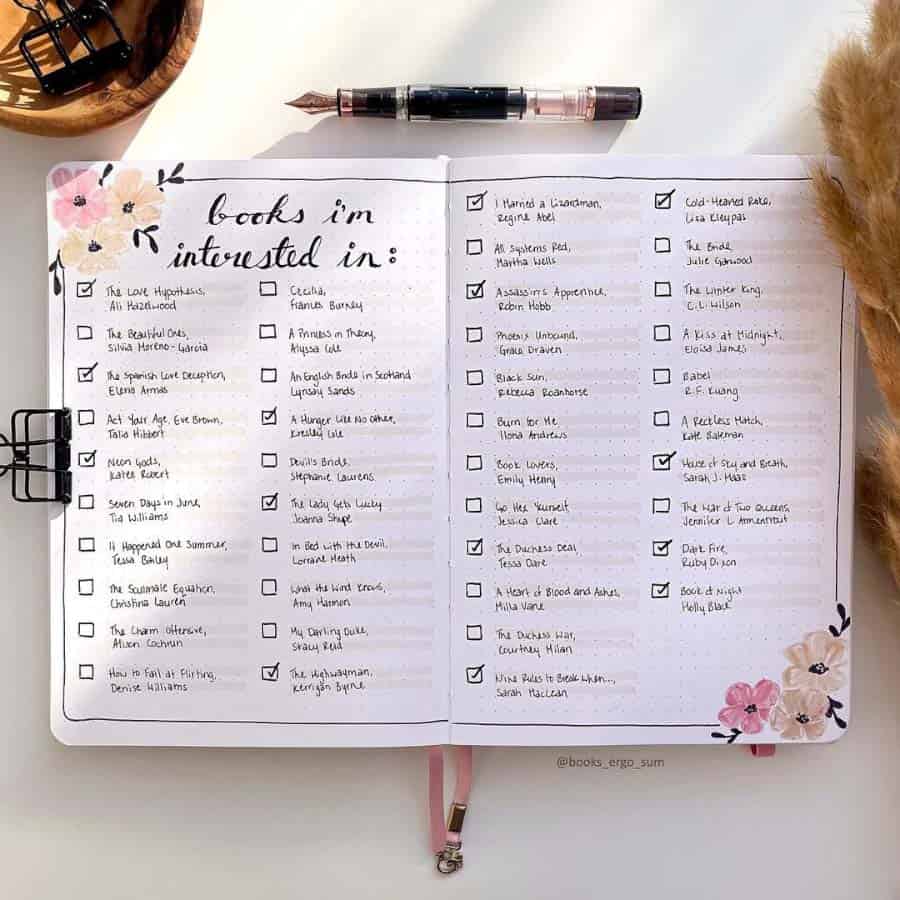 books i'm
interested in:
The Love Hypothesis,
Ali Hazelwood
The Beautiful Ones,
Silvia Moreno-Garcia
The Spanish Love Deception,
Elena Armas
Act Your Age, Eve Brown,
Talia Hibbert
Neon Gods,
Katee Robert
Seven Days in June,
Tia Williams
It Happened One Summer,
Tessa Bailey
The Soulmate Equation,
Christina Lauren
The Charm Offensive,
Alison Cochrun
How to Fail at Flirting,
Denise Williams
Cecilia,
Frances Burney
A Princess in Theory,
Alyssa Cole
An English Bride in Scotland
Lynsay Sands
A Hunger Like No Other,
Kresley Cole
Devil's Bride,
Stephanie Laurens
The Lady Gets Lucky
Joanna Shupe
In Bed with the Devil,
Lorraine Heath
What the Wind Knows,
Amy Harmon
My Darling Duke,
Stacy Reid
The Highwayman,
Kerrigan Byrne
I Married a Lizardman,
Regine Abel
All Systems Red,
Martha Wells
Assassin's Apprentice,
Robin Hobb
Phoenix Unbound,
Grace Draven
Black Sun,
Rebecca Roanhorse
Burn for Me
Ilona Andrews
Book Lovers,
Emily Henry
Go Hex Yourself
Jessica Clare
The Duchess Deal,
Tessa Dare
A Heart of Blood and Ashes,
Milla Vane
The Duchess War,
Courtney Milan
Nine Rules to Break When...,
Sarah MacLean
Cold-Hearted Rake,
Lisa Kleypas
The Bride,
Julie Garwood
The Winter King,
C.L. Wilson
A Kiss at Midnight,
Eloisa James
Babel
R.F. Kuang
A Reckless Match,
Kate Bateman
House of Sky and Breath,
Sarah J. Maas
The War of Two Queens,
Jennifer L Armentrout
Dark Fire,
Ruby Dixon
Book of Night
Holly Black
@books_ergo_sum